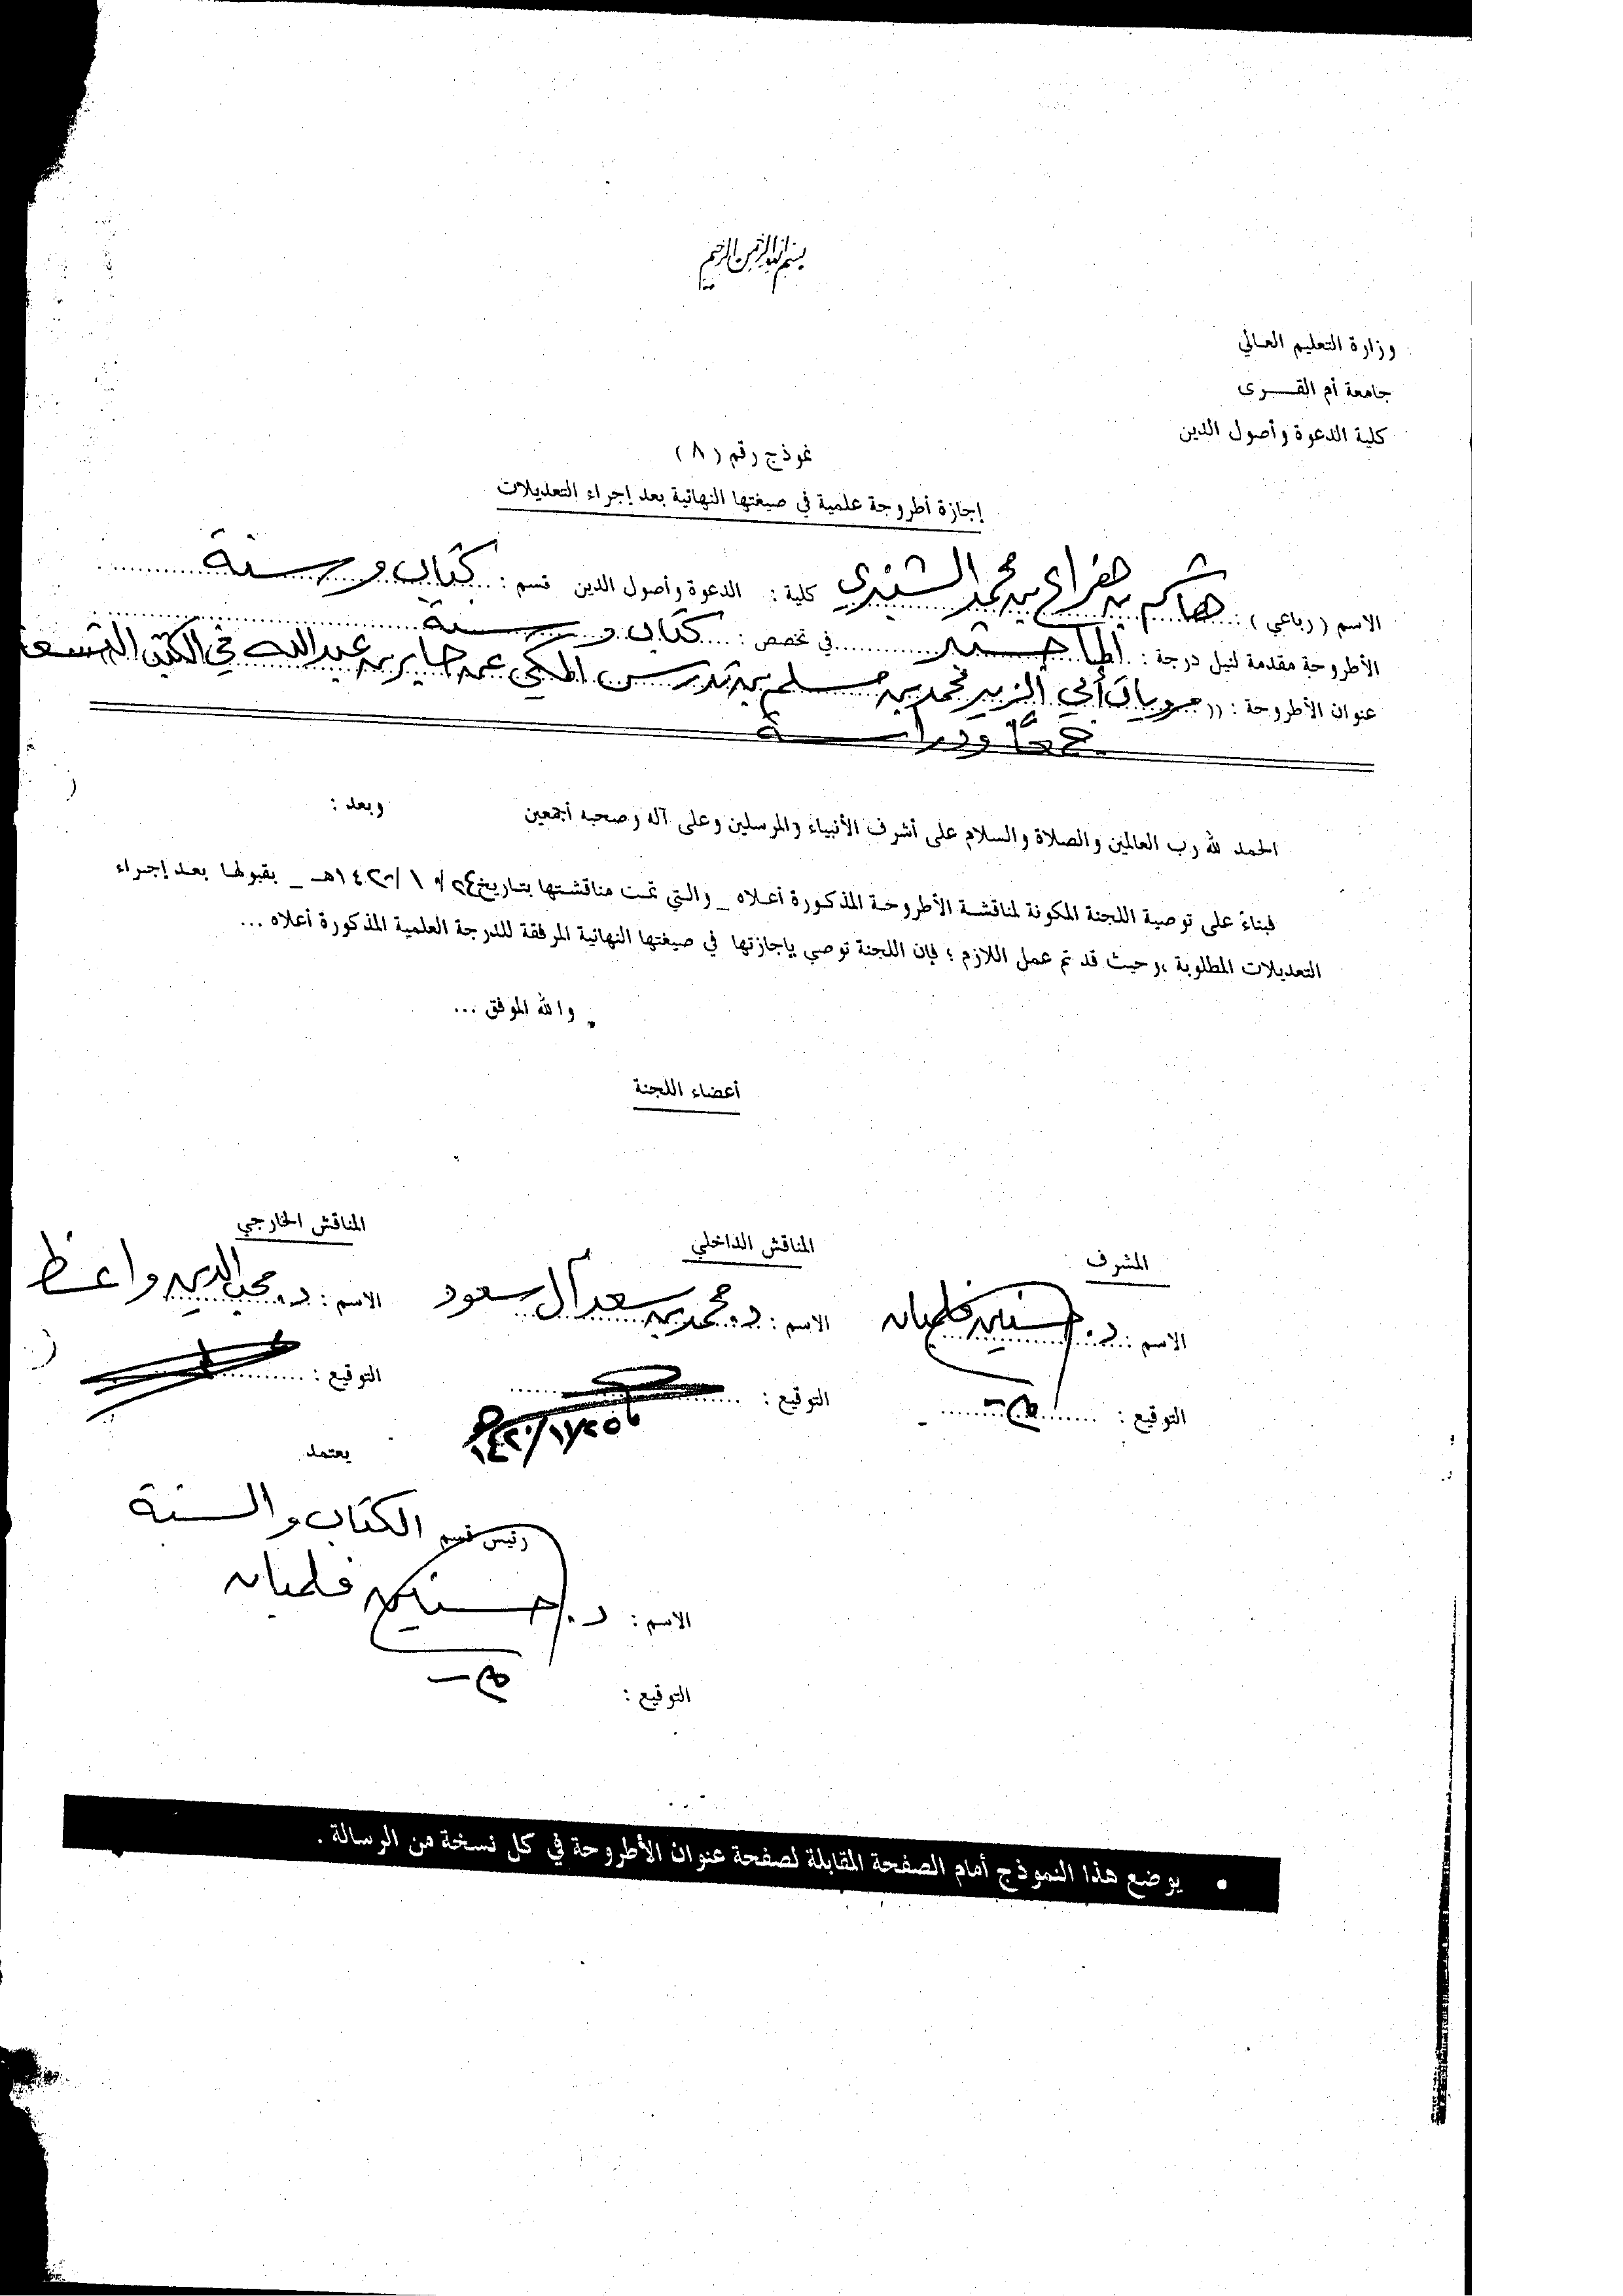 بسم الله الرحمن الرحيم
وزارة التعليم العالي
جامعة أم القرى
كلية الدعوة وأصول الدين
نموذج رقم ( ٨ )
إجازة أطروحة علمية في صيغتها النهائية بعد إجراء التعديلات
الاسم ( رباعي ) : هاشم بن هزاع بن محمد الشنبري كلية : الدعوة وأصول الدين قسم : كتاب وسنة
الأطروحة مقدمة لنيل درجة : الماجستير في تخصص : كتاب وسنة
عنوان الأطروحة : (( مرويات أبي الزبير محمد بن مسلم بن تدرس المكي عن جابر بن عبدالله في الكتب التسعة
جمعًا ودراسة
الحمد لله رب العالمين والصلاة والسلام على أشرف الأنبياء والمرسلين وعلى آله وصحبه أجمعين وبعد :
فبناءً على توصية اللجنة المكونة لمناقشة الأطروحة المذكورة أعلاه _ والتي تمت مناقشتها بتاريخ _ بقبولها بعد إجراء
التعديلات المطلوبة ، وحيث قد تم عمل اللازم ؛ فإن اللجنة توصي بإجازتها في صيغتها النهائية المرفقة للدرجة العلمية المذكورة أعلاه ...
والله الموفق ...
أعضاء اللجنة
المشرف المناقش الداخلي المناقش الخارجي
الاسم : د. حسنين فلمبان الاسم : د. محمد بن سعد آل سعود الاسم : د. محب الدين واعظ
التوقيع : التوقيع : التوقيع :
يعتمد
رئيس قسم الكتاب والسنة
الاسم : د. حسنين فلمبان
التوقيع :
• يوضع هذا النموذج أمام الصفحة المقابلة لصفحة عنوان الأطروحة في كل نسخة من الرسالة .